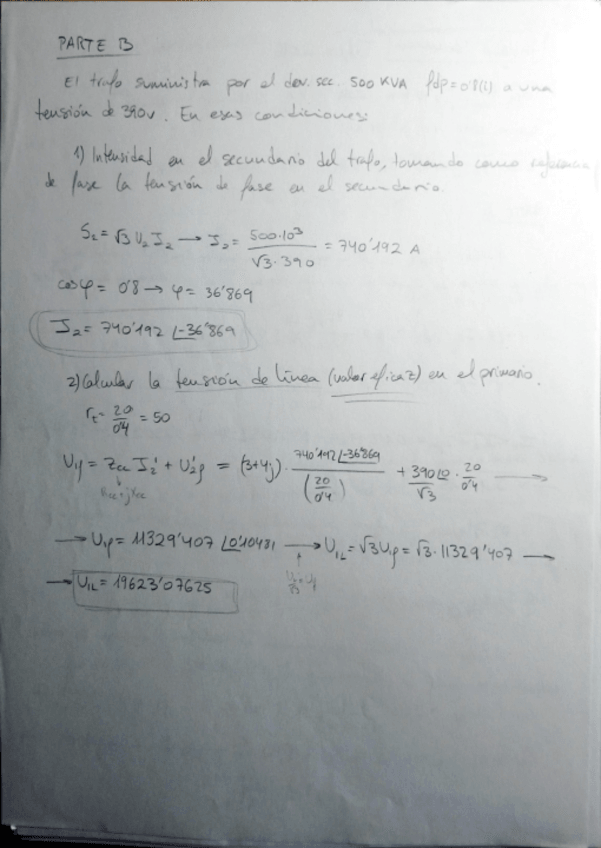 PARTE B
El trafo suministra por el dev. sec. 500 KVA fdp=0'8(i) a una
tensión de 390v. En esas condiciones:
1) Intensidad en el secundario del trafo, tomando como referencia
de fase la tensión de fase en el secundario.
S₂ = √3 U₂ I₂ → I₂ = 500·10³ / √3·390 = 740'192 A
cos φ = 0'8 → φ = 36'869
I₂ = 740'192 ∠-36'869
2) Calcular la tensión de línea (valor eficaz) en el primario.
rt = 20/0'4 = 50
U1f = Zcc I₂' + U₂f' = (3+4j) · 740'192∠-36'869 / (20/0'4) + 390∠0/√3 · 20/0'4 →
Rcc+jXcc
→ U1f = 11329'407 ∠0'10481 → U1L = √3 U1f = √3 · 11329'407 →
→ U1L = 19623'07625